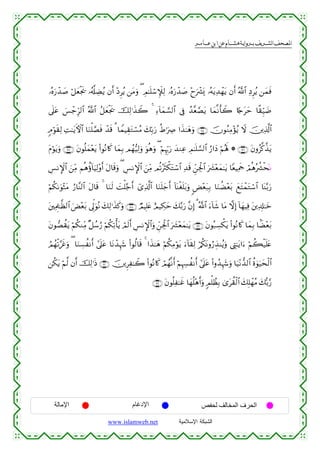 المصحف الشريف برواية هشام عن ابن عامر
فَمَن يُرِدِ ٱللَّهُ أَن يَهْدِيَهُۥ يَشْرَحْ صَدْرَهُۥ لِلْإِسْلَٰمِ ۖ وَمَن يُرِدْ أَن يُضِلَّهُۥ يَجْعَلْ صَدْرَهُۥ
ضَيِّقًا حَرَجًا كَأَنَّمَا يَصَّعَّدُ فِى ٱلسَّمَآءِ ۚ كَذَٰلِكَ يَجْعَلُ ٱللَّهُ ٱلرِّجْسَ عَلَى
ٱلَّذِينَ لَا يُؤْمِنُونَ وَهَٰذَا صِرَٰطُ رَبِّكَ مُسْتَقِيمًا ۗ قَدْ فَصَّلْنَا ٱلْءَايَٰتِ لِقَوْمٍ
يَذَّكَّرُونَ ۞ لَهُمْ دَارُ ٱلسَّلَٰمِ عِندَ رَبِّهِمْ ۖ وَهُوَ وَلِيُّهُم بِمَا كَانُوا۟ يَعْمَلُونَ وَيَوْمَ
نَحْشُرُهُمْ جَمِيعًا يَٰمَعْشَرَ ٱلْجِنِّ قَدِ ٱسْتَكْثَرْتُم مِّنَ ٱلْإِنسِ ۖ وَقَالَ أَوْلِيَآؤُهُم مِّنَ ٱلْإِنسِ
رَبَّنَا ٱسْتَمْتَعَ بَعْضُنَا بِبَعْضٍ وَبَلَغْنَآ أَجَلَنَا ٱلَّذِىٓ أَجَّلْتَ لَنَا ۚ قَالَ ٱلنَّارُ مَثْوَىٰكُمْ
خَٰلِدِينَ فِيهَآ إِلَّا مَا شَآءَ ٱللَّهُ ۗ إِنَّ رَبَّكَ حَكِيمٌ عَلِيمٌ وَكَذَٰلِكَ نُوَلِّى بَعْضَ ٱلظَّٰلِمِينَ
بَعْضًۢا بِمَا كَانُوا۟ يَكْسِبُونَ يَٰمَعْشَرَ ٱلْجِنِّ وَٱلْإِنسِ أَلَمْ يَأْتِكُمْ رُسُلٌ مِّنكُمْ يَقُصُّونَ
عَلَيْكُمْ ءَايَٰتِى وَيُنذِرُونَكُمْ لِقَآءَ يَوْمِكُمْ هَٰذَا ۚ قَالُوا۟ شَهِدْنَا عَلَىٰٓ أَنفُسِنَا ۖ وَغَرَّتْهُمُ
ٱلْحَيَوٰةُ ٱلدُّنْيَا وَشَهِدُوا۟ عَلَىٰٓ أَنفُسِهِمْ أَنَّهُمْ كَانُوا۟ كَٰفِرِينَ ذَٰلِكَ أَن لَّمْ يَكُن
رَّبُّكَ مُهْلِكَ ٱلْقُرَىٰ بِظُلْمٍ وَأَهْلُهَا غَٰفِلُونَ
الحرف المخالف لحفص الإدغام الإمالة
www.islamweb.net الشبكة الإسلامية